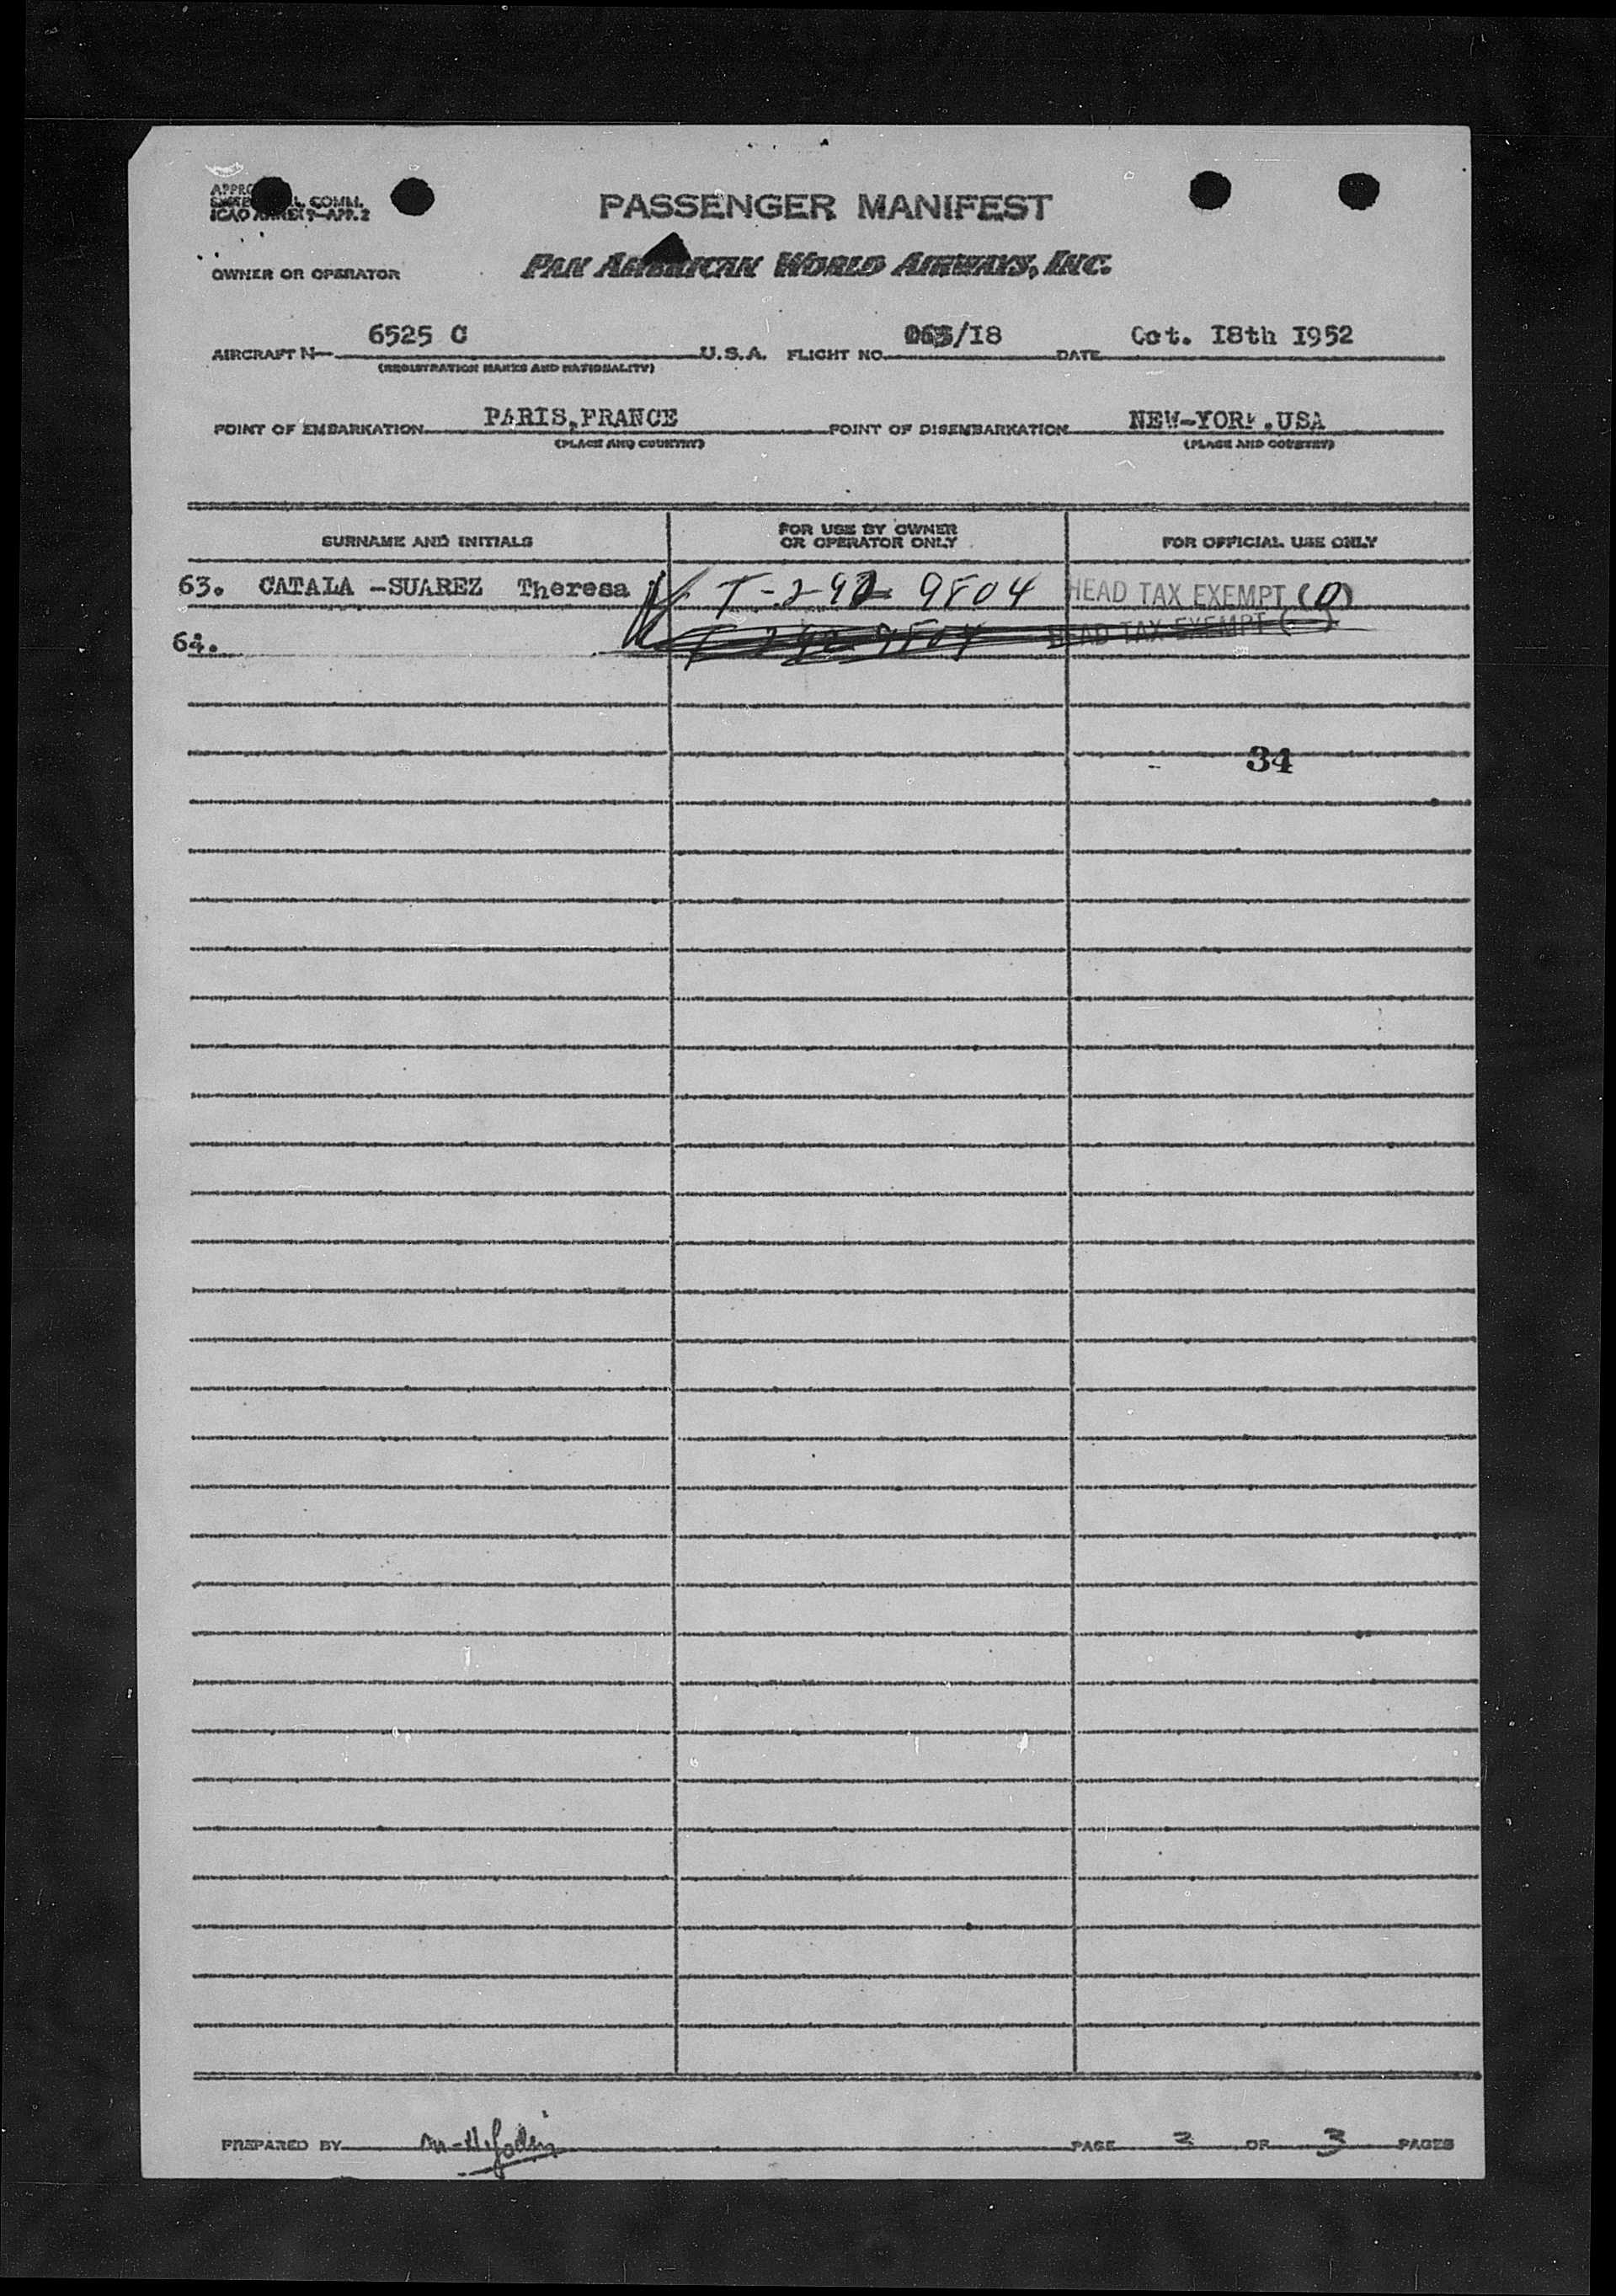 PASSENGER MANIFEST
COMM.
ICAO ANNEX 9-APP. 2
OWNER OR OPERATOR
PAN AMERICAN WORLD AIRWAYS, INC.
6525 C /I8 Oct. I8th I952
AIRCRAFT N U.S.A. FLIGHT NO. DATE
(REGISTRATION MARKS AND NATIONALITY)
PARIS,FRANCE NEW-YORK.USA
POINT OF EMBARKATION POINT OF DISEMBARKATION
(PLACE AND COUNTRY) (PLACE AND COUNTRY)
SURNAME AND INITIALS FOR USE BY OWNER OR OPERATOR ONLY FOR OFFICIAL USE ONLY
63. CATALA -SUAREZ Theresa T-2-92 9804 HEAD TAX EXEMPT (0)
64. HEAD TAX EXEMPT ( )
34
PREPARED BY PAGE 3 OF 3 PAGES